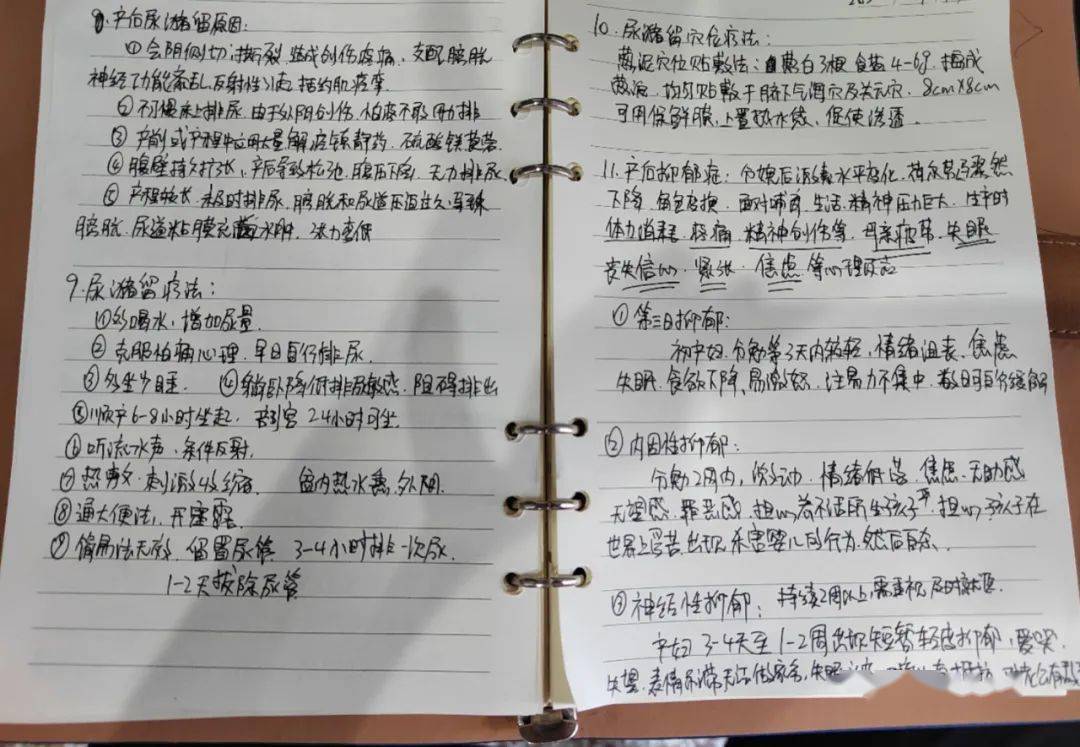 8.产后尿潴留原因:
①会阴侧切口撕裂造成创伤疼痛、支配膀胱
神经功能紊乱反射性引起括约肌痉挛
②不习惯床上排尿.由于外阴创伤,怕疼不敢用力排
③产前或产程中应用大量解痉镇静药、硫酸镁莨菪
④腹壁持久扩张、产后导致松弛.腹压下降,无力排尿
⑤产程较长未及时排尿.膀胱和尿道压迫过久,导致
膀胱、尿道粘膜充血水肿、张力变低
9.尿潴留疗法:
①多喝水,增加尿量.
②克服怕痛心理,早日自行排尿.
③多坐少睡 ④躺卧降低排尿敏感、阻碍排出
⑤顺产6-8小时坐起,剖宫24小时可坐.
⑥听流水声、条件反射.
⑦热敷、刺激收缩. 盆内热水熏外阴.
⑧通大便法,开塞露.
⑨偏用法无效、留置尿管 3-4小时排一次尿.
1-2天拔除尿管
10.尿潴留穴位疗法:
葱泥穴位贴敷法:葱白3根食盐4-6g.捣成
葱泥,均匀贴敷于脐下气海穴及关元穴.8cm×8cm
可用保鲜膜,上置热水袋、促使渗透.
11.产后抑郁症:分娩后激素水平变化,荷尔蒙骤然
下降、角色变换、面对哺育、生活、精神压力巨大、生产时
体力消耗、疼痛、精神创伤等、母亲疲劳、失眠
丧失信心、紧张、焦虑等心理反应
①第三日抑郁:
初产妇.分娩第3天内较轻,情绪沮丧、焦虑
失眠.食欲下降.易激怒.注意力不集中.数日可自行缓解
②内因性抑郁:
分娩2周内,激动、情绪低落、焦虑、无助感
无望感.罪恶感.担心养不活所生孩子,担心孩子在
世界上受苦.出现杀害婴儿的行为.然后自杀.
③神经性抑郁:持续2周以上,需重视,及时
产妇3-4天至1-2周出现短暂轻度抑郁,爱哭.
失望.表情